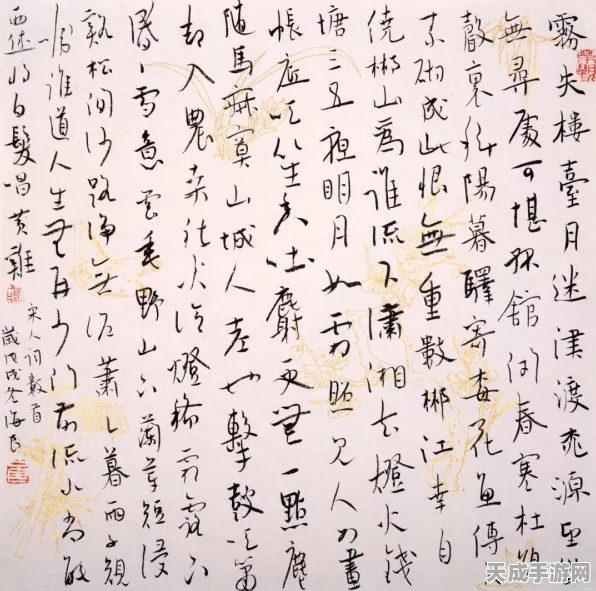 霧失樓臺月迷津渡桃源望斷
無尋處可堪孤館閉春寒杜鵑
聲裏斜陽暮驛寄梅花魚傳
素砌成此恨無重數郴江幸自
繞郴山為誰流下瀟湘去燈火錢
塘三五夜明月如霜照見人如畫
帳底吹笙香吐麝更無一點塵
隨馬寂寞山城人老也擊鼓吹簫
却入農桑社火冷燈稀霜露下
昏昏雪意雲垂野山下蘭芽短浸
谿松間沙路淨無泥蕭蕭暮雨子規
啼誰道人生無再少門前流水尚能
西休將白髮唱黃雞
宋人詞數首
歲戊戌冬海民
天成手游网